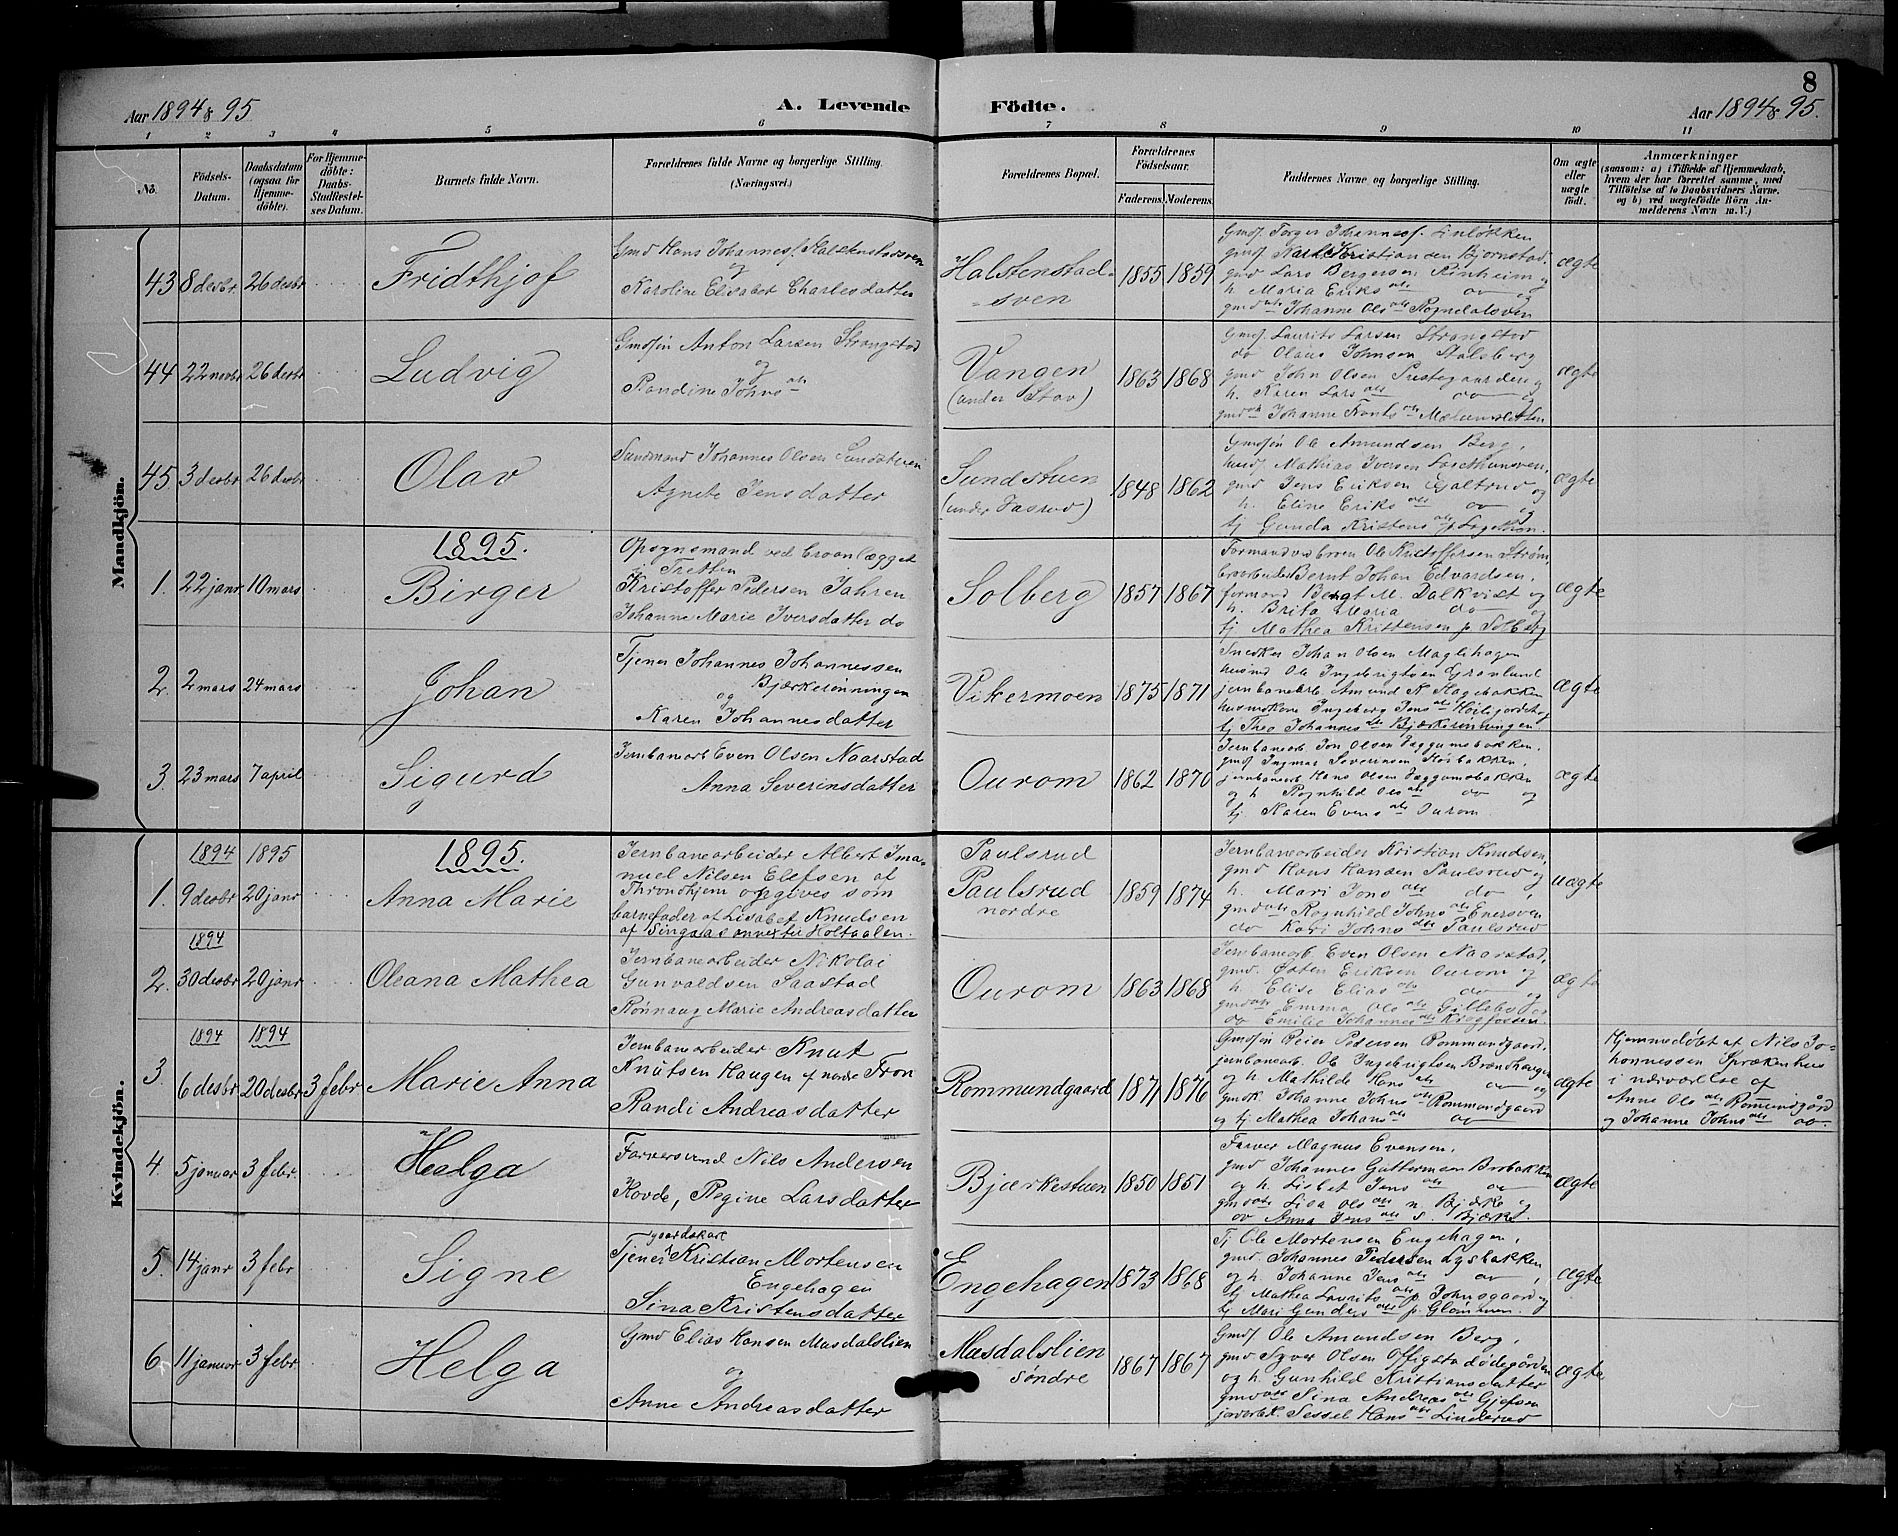 8
Aar 1894 & 95
A. Levende Födte.
Aar 1894 & 95.
1 2 3 4 5 6 7 8 9 10 11
No.
Födsels-
Datum.
Daabsdatum
(ogsaa for
Hjemme-
döbte).
For Hjemme-
döbte:
Daabs-
Stadfæstel-
ses Datum.
Barnets fulde Navn.
Forældrenes fulde Navne og borgerlige Stilling.
(Næringsvei.)
Forældrenes Bopæl.
Forældrenes
Födselsaar.
Faderens. Moderens.
Faddernes Navne og borgerlige Stilling.
Om ægte
eller
uægte
födt.
Anmærkninger
(saasom: a) i Tilfælde af Hjemmedaab,
hvem der har forrettet samme, med
Tilföielse af to Daabsvidners Navne,
og b) ved uægtefödte Börn An-
melderens Navn m. V.)
Mandkjön.
43 8 desbr 26 desbr
Fridthjof
Gmd Hans Johannes. Halstenstadsven
og
Karoline Elisabet Charlesdatter
Halstenstad-
sven
1855 1859
Gmdf. Torger Johannesf. Linløkken
gmdf. Karl Kristiansen Bjørnstad
gmd Lars Bergersen Rinheim og
h. Maria Eriks dtr do og
gmd dtr Johanne Ols dtr Rogndalsven
ægte
44 22 novbr 26 desbr
Ludvig
Gmdsøn Anton Larsen Strangstad
og
Randine Johns dtr
Vangen
(under Stav)
1863 1868
Gmdf. Laurits Larsen Strangstad
do Olaus Johnsen Staleberg
gmd John Olsen Prestegaarden og
h. Karen Lars dtr do og
gmd dtr Johanne Knuts dtr Mælumsletten
ægte
45. 3 desbr 26 desbr
Olav
Sundmand Johannes Olsen Sundstuen
Agnete Jensdatter
Sundstuen
(under Fasrud)
1848 1862
Gmdsøn Ole Amundsen Berg,
Mathias Iversen
gmd Jens Eriksen Galtrud og
h. Eline Eriks dtr do og
tj Gunda Kristens dtr p.
ægte
1895.
1. 22 janr 10 mars
Birger
Opsynsmand ved broanlægget
i Tretten
Kristoffer Pedersen Jahren
Johanne Marie Iversdatter do
Solberg
1857 1867
Formand ved broen Ole Kristoffersen Strøm,
broarbeider Bernt Johan Edvardsen,
formand Bengt M. Dalkvist og
h. Brita Maria do og
tj Mathea Kristensen p Solberg
ægte
2. 2 mars 24 mars
Johan
Tjener Johannes Johannessen
Bjørkerønningen
og
Karen Johannesdatter
Vikermoen
1875 1871
Snekker Johan Olsen Maglihagen
husmd Ole Ingebrigtsen Grønlund
jernbanearb Amund N Hagebakken
huusmkone Ingeborg Jens dtr
tj Thea Johannes dtr Bjørkerønningen
ægte
3. 23 mars 7 april
Sigurd
Jernbanearb Even Olsen Naarstad
Anna Severinsdatter
Ourom
1862 1870
Jernbanearb. Jon Olsen Jæggumsbakken.
gmdf Ingmar Severinsen
jernbanearb Hans Olsen Jæggumsbakken
og h Ragnhild Ols dtr do og
tj. Karen Evens dtr Ourom
ægte
Kvindekjön.
1894 1895
1895.
1. 9 desbr 20 janr
Anna Marie
Jernbanearbeider Albert Ima-
nuel Nilsen Elefsen af
Throndhjem opgives som
barnefader af Lisabet Knudsen
af Singsaas annex til Holtaalen.
Paulsrud
Paulsrud
nordre
1859 1874
Jernbanearbeider Kristian Knudsen,
gmd Hans Hansen Paulsrud og
h. Mari Jons dtr do,
gmd dtr Ragnhild Johns dtr Enersven
do Kari Johns dtr Paulsrud
uægte
1894
2. 30 desbr 20 janr
Oleana Mathea
Jernbanearbeider Nikolai
Gunvaldsen Saastad
Rønnaug Marie Andreasdatter
Ourom
1863 1868
Jernbanearb. Even Olsen Naarstad,
gmd. Østen Eriksen Ourom og
h Elise Elias dtr do og
gmd dtr Emma Ols dtr Gillebo og
do Emilie Johannes dtr Krogfossen.
ægte
1894 1894
3. 6 desbr 20 desbr 3 febr
Marie Anna
Jernbanearbeider Knut
Knutsen Haugen af nordre Fron
Randi Andreasdatter
Rommundgaard
1871 1876
Gmdsøn Peier Petersen Rommundgaard,
jernbanearb. Ole Ingebrigtsen Brændhaugen
og h Mathilde Hans dtr do og
gmdk Johanne Johns dtr Rommundgaard
og tj. Mathea Johans dtr do
ægte
Hjemmedøbt af Nils Jo-
hannessen Sprækenhus
i nærværelse af
Anne Ols dtr Romundgård
og Johanne Johns dtr do
4. 5 januar 3 febr.
Helga
Farversvend Nils Andersen
Hovde, Regine Larsdatter
Bjærkestuen
1850 1851
Farver Magnus Evensen,
gmd Johannes Guttormsen Brobakken
og h. Lisbet Jens dtr do
gmd dtr Lisa Ols dtr n. Bjærke og
do Anna Jens dtr s. Bjærke
ægte
5. 14 janr 3 febr
Signe
gaardskarl
Tjener Kristian Mortensen
Engehagen
Sina Kristensdatter
Engehagen
1873 1868
Tj Ole Mortensen Engehagen,
gmd. Johannes Pedersen Lysbakken
og h. Johanne Jens dtr do,
tj Mathea Laurits dtr p Johnsgaard og
tj Mari Gunders dtr p. Glømmen.
ægte
6. 11 januar 3 febr
Helga
Gmd Elias Hansen Musdalslien
og
Anne Andreasdatter
Musdalslien
søndre
1867 1867
Gmdf Ole Amundsen Berg,
gmd Syver Olsen Offigstad ødegården
og h Gunhild Kristiansdatter
gmd dtr Sina Andreas dtr Gjefsen
Sessel Hans dtr Linderud
ægte